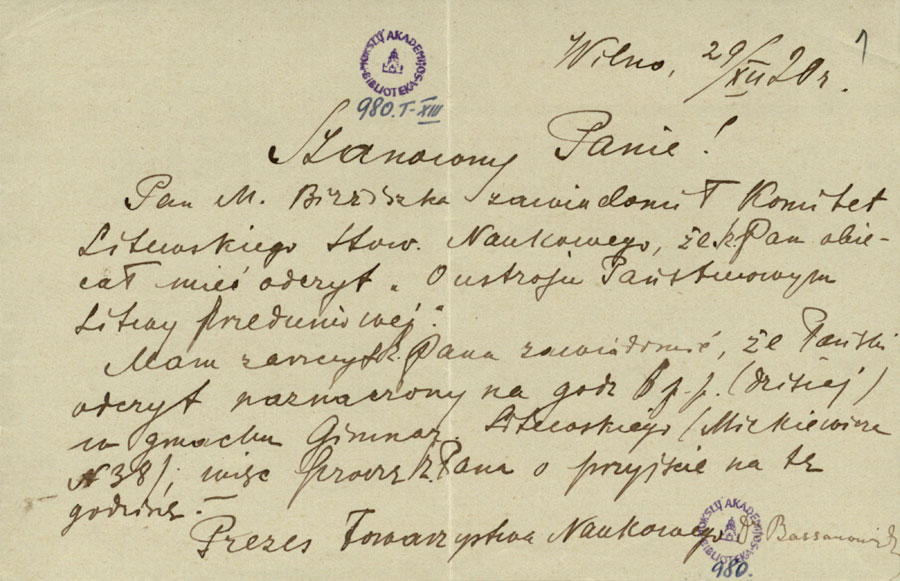 1
Wilno, 29/XII 20 r.
MOKSLŲ AKADEMIJOS BIBLIOTEKA
980. T-XIII
Szanowny Panie!
Pan M. Birżiszka zawiadomił Komitet
Litewskiego Stow. Naukowego, że Pan obie-
cał mieć odczyt „O ustroju Państwowym
Litwy przedunijowej".
Mam zaszczyt Pana zawiadomić, że Pański
odczyt naznaczony na godz 6 p.p. (dzisiej)
w gmachu Gimnaz. Litewskiego (Mickiewicza
N 38); więc proszę Pana o przyjście na tę
godzinę. –
Prezes Towarzystwa Naukowego Dr Bassanowicz
MOKSLŲ AKADEMIJOS BIBLIOTEKA
980.